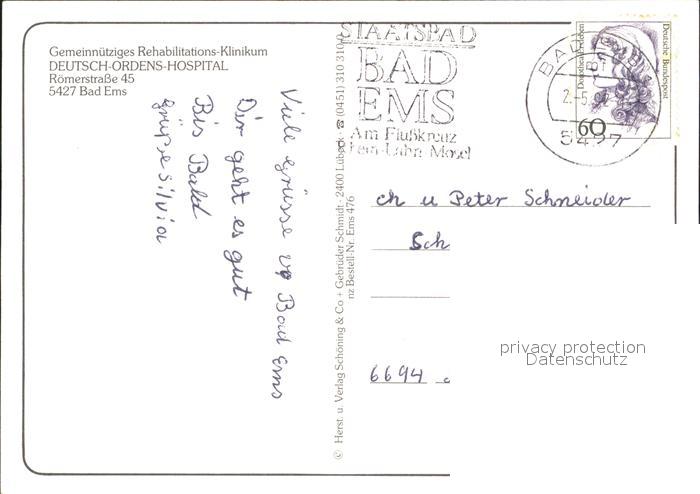 Gemeinnütziges Rehabilitations-Klinikum
DEUTSCH-ORDENS-HOSPITAL
Römerstraße 45
5427 Bad Ems
Viele Grüsse vo Bad Ems
Dir geht es gut
Bis Bald
Grüße Silvia
© Herst. u. Verlag Schöning & Co + Gebrüder Schmidt · 2400 Lübeck · ☎ (0451) 310 310
nz Bestell-Nr. Ems 476
STAATSBAD
BAD
EMS
Am Flußkreuz
Lahn-Mosel
BAD
2.-5.
5427
Deutsche Bundespost
60
ch u Peter Schneider
Sch
6694
privacy protection
Datenschutz